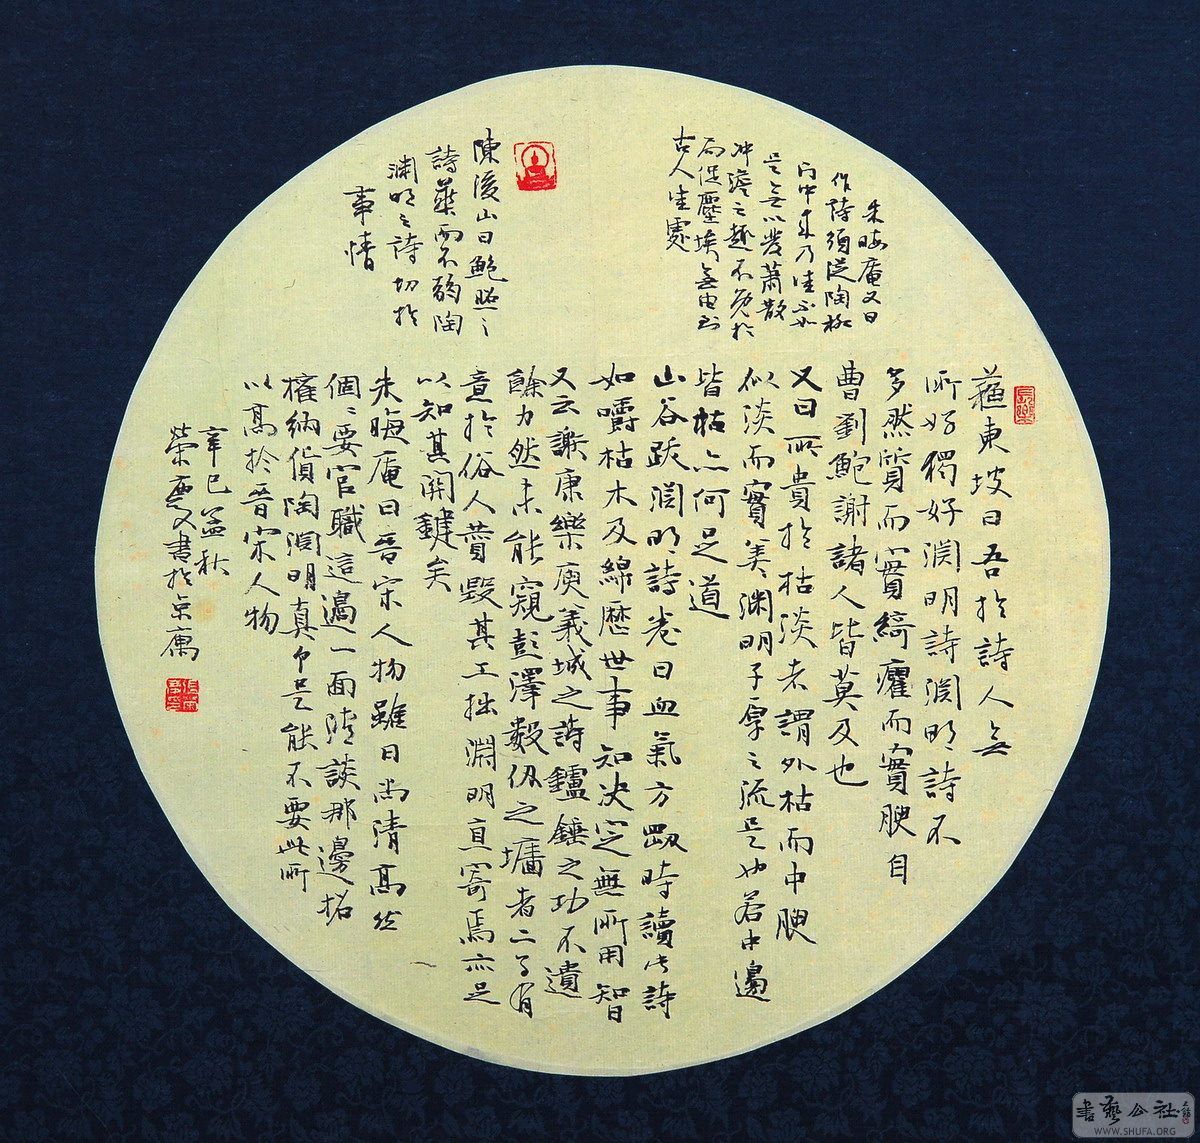 蘓東坡曰吾於詩人無
所好獨好淵明詩淵明詩不
多然質而實綺癯而實腴自
曹劉鮑謝諸人皆莫及也
又曰所貴於枯淡者謂外枯而中腴
似淡而實美淵明子厚之流是也若中邊
皆枯亦何足道
山谷跋淵明詩卷曰血氣方剛時讀此詩
如嚼枯木及綿歷世事知決定無所用智
又云謝康樂庾義城之詩鑪錘之功不遺
餘力然未能窺彭澤數仞之墻者二子有
意於俗人贊毀其工拙淵明直寄焉亦足
以知其関鍵矣
朱晦庵曰晉宋人物雖曰尚清高然
個〻要官職這邊一面清談那邊招
權納貨陶淵明真个是能不要此所
以高於晉宋人物
辛巳孟秋
榮慶書於京寓
朱晦庵又曰
作詩須從陶柳
門中來乃佳不如
是無以發蕭散
冲澹之趣不免於
局促塵埃無由到
古人佳處
陳後山曰鮑照之
詩華而不弱陶
淵明之詩切於
事情
書藝公社
WWW.SHUFA.ORG